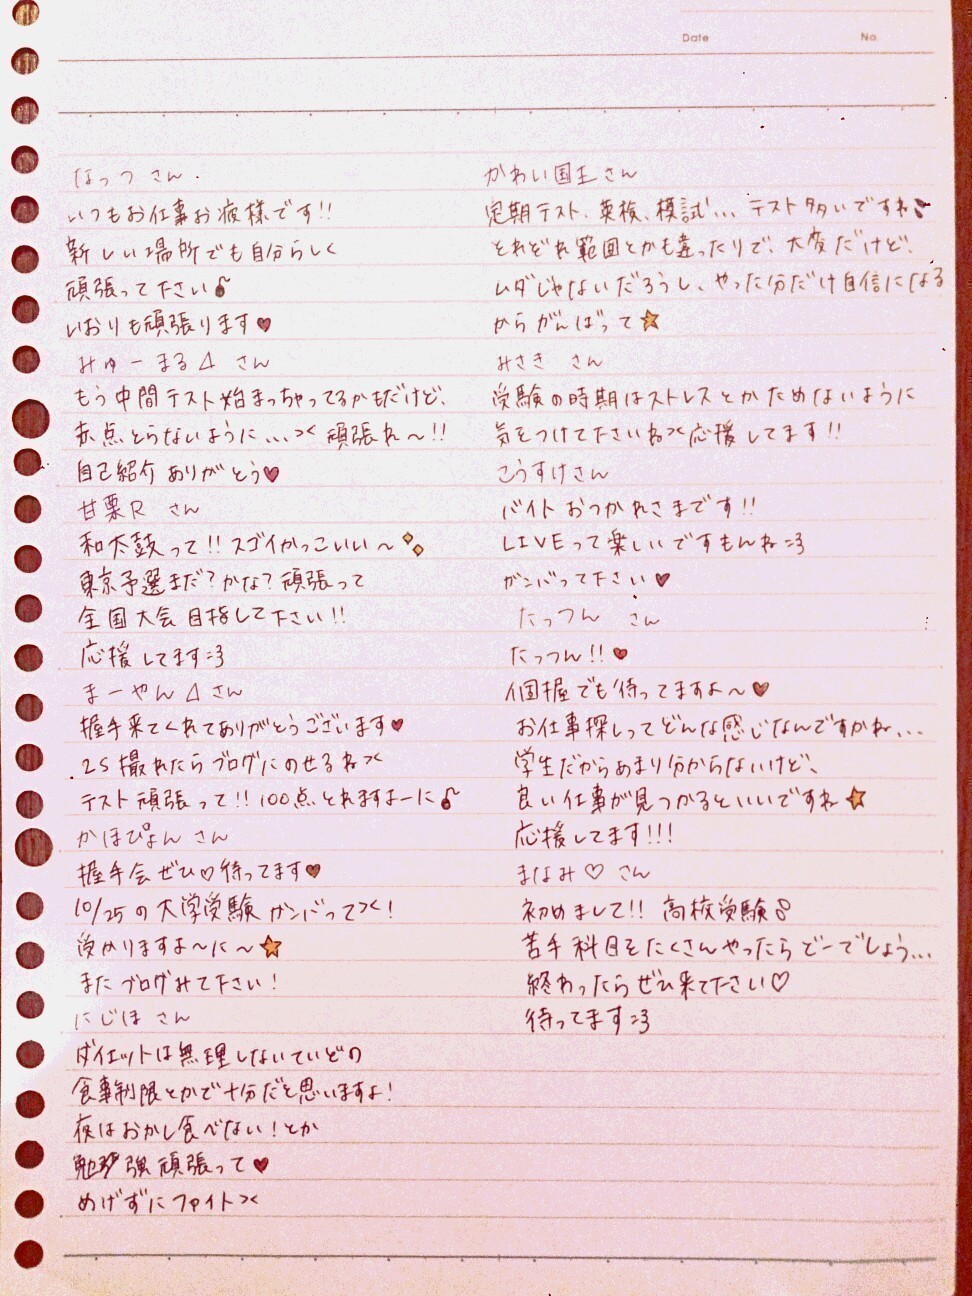 Date No.
なっつ さん.
いつもお仕事お疲様です!!
新しい場所でも自分らしく
頑張って下さい♪
いおりも頑張ります♥
みゅーまる△ さん
もう中間テスト始まっちゃってるかもだけど、
赤点とらないように...>< 頑張れ〜!!
自己紹介ありがとう♥
甘栗R さん
和太鼓って!! スゴイかっこいい〜
東京予選まだ?かな? 頑張って
全国大会目指して下さい!!
応援してます:3
まーやん△ さん
握手来てくれてありがとうございます♥
2S撮れたらブログにのせるね><
テスト頑張って!! 100点とれますよーに♪
かほぴょん さん
握手会ぜひ♡待ってます♥
10/25の大学受験ガンバって><!
受かりますよ〜に〜★
またブログみて下さい!
にじほ さん
ダイエットは無理しないていどの
食事制限とかで十分だと思いますよ!
夜はおかし食べない!とか
勉強頑張って♥
めげずにファイト><
かわい国王さん
定期テスト、英検、模試... テスト多いですね
それぞれ範囲とかも違ったりで、大変だけど、
ムダじゃないだろうし、やった分だけ自信になる
からがんばって★
みさき さん
受験の時期はストレスとかためないように
気をつけて下さいね><応援してます!!
こうすけさん
バイトおつかれさまです!!
LIVEって楽しいですもんね:3
ガンバって下さい♥
たっつん さん
たっつん!!♥
個握でも待ってますよ〜♥
お仕事探しってどんな感じなんですかね...
学生だからあまり分からないけど、
良い仕事が見つかるといいですね★
応援してます!!!
まなみ♡ さん
初めまして!! 高校受験
苦手科目をたくさんやったらどーでしょう...
終わったらぜひ来て下さい♡
待ってます:3